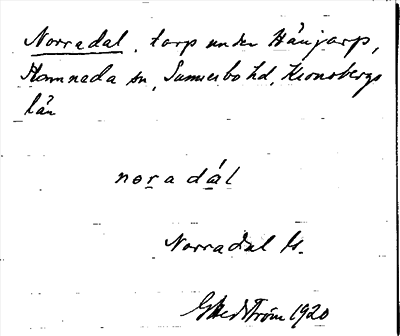 Norradal, torp under Hånjarp,
Hamnada sn, Sunnerbo hd, Kronobergs
län
noradál
Norradal Ls.
GHedström 1920